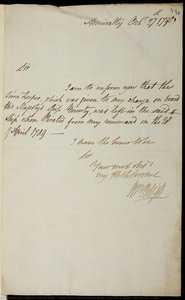 Admiralty Octr. 27 1790
Sir
I am to inform you that the
Time keeper, which was given to my charge on board
His Majesty's Ship Bounty, was left in the said
Ship when Pirated from my command on the 28
of April 1789
I have the honor to be
Sir
Your most obt.
very Hble Servant
Wm. Bligh